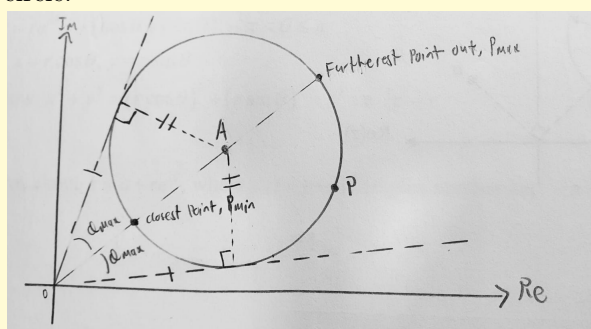 Im
Furtherest Point out, Pmax
A
P
closest Point, Pmin
θmax
θmax
0
Re